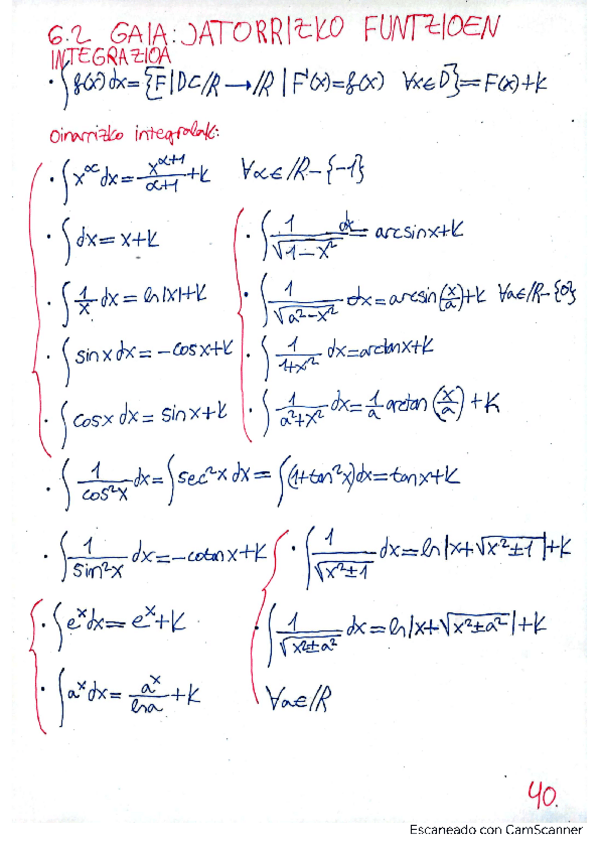 6.2 GAIA: JATORRIZKO FUNTZIOEN
INTEGRAZIOA
· ∫f(x)dx = {F|D⊂ℝ → ℝ | F'(x)=f(x) ∀x∈D} = F(x)+K
Oinarrizko integralak:
· ∫x^α dx = x^(α+1)/(α+1) + K ∀α∈ℝ-{-1}
· ∫dx = x+K
· ∫1/x dx = ln|x|+K
· ∫sin x dx = -cos x+K
· ∫cos x dx = sin x+K
· ∫1/√(1-x²) dx = arcsin x+K
· ∫1/√(a²-x²) dx = arcsin(x/a)+K ∀a∈ℝ-{0}
· ∫1/(1+x²) dx = arctan x+K
· ∫1/(a²+x²) dx = 1/a arctan(x/a)+K
· ∫1/cos²x dx = ∫sec²x dx = ∫(1+tan²x)dx = tan x+K
· ∫1/sin²x dx = -cotan x+K
· ∫e^x dx = e^x+K
· ∫a^x dx = a^x/ln a + K
· ∫1/√(x²±1) dx = ln|x+√(x²±1)|+K
· ∫1/√(x²±a²) dx = ln|x+√(x²±a²)|+K
∀a∈ℝ
40.
Escaneado con CamScanner